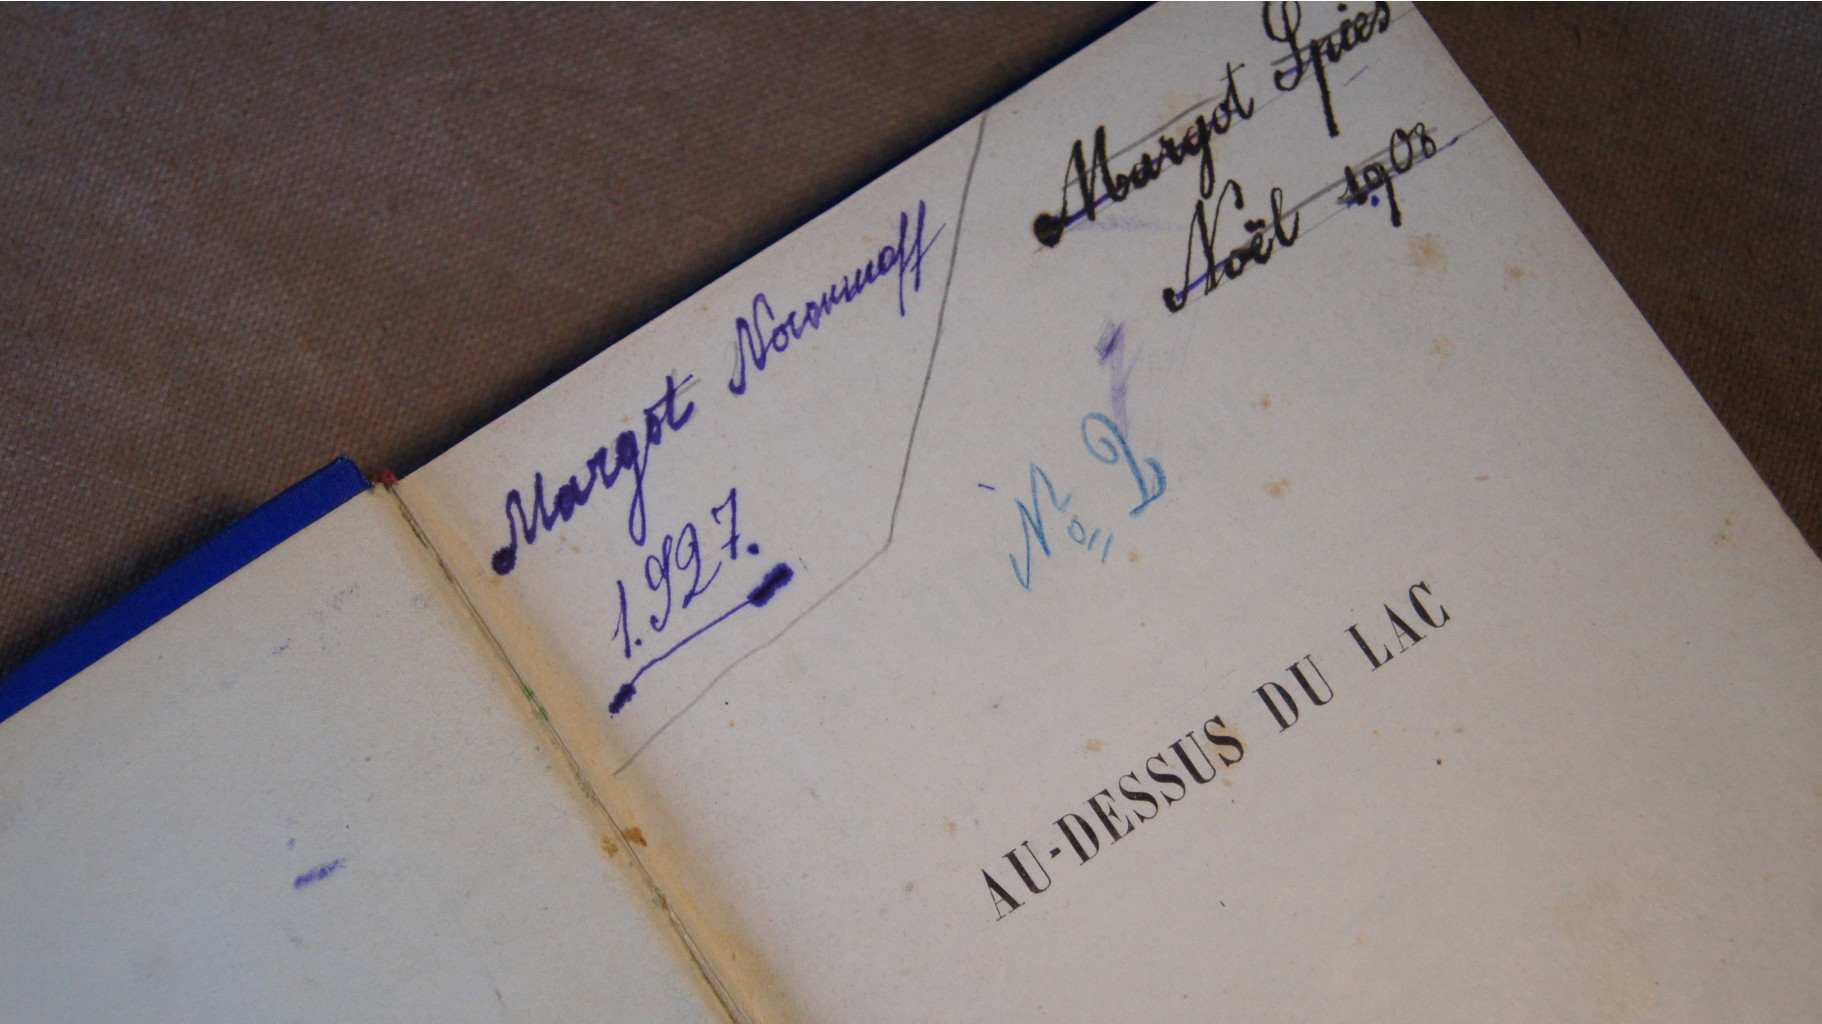 Margot Spies
Noël 1908
Margot
1.927.
1
No 2
AU-DESSUS DU LAC